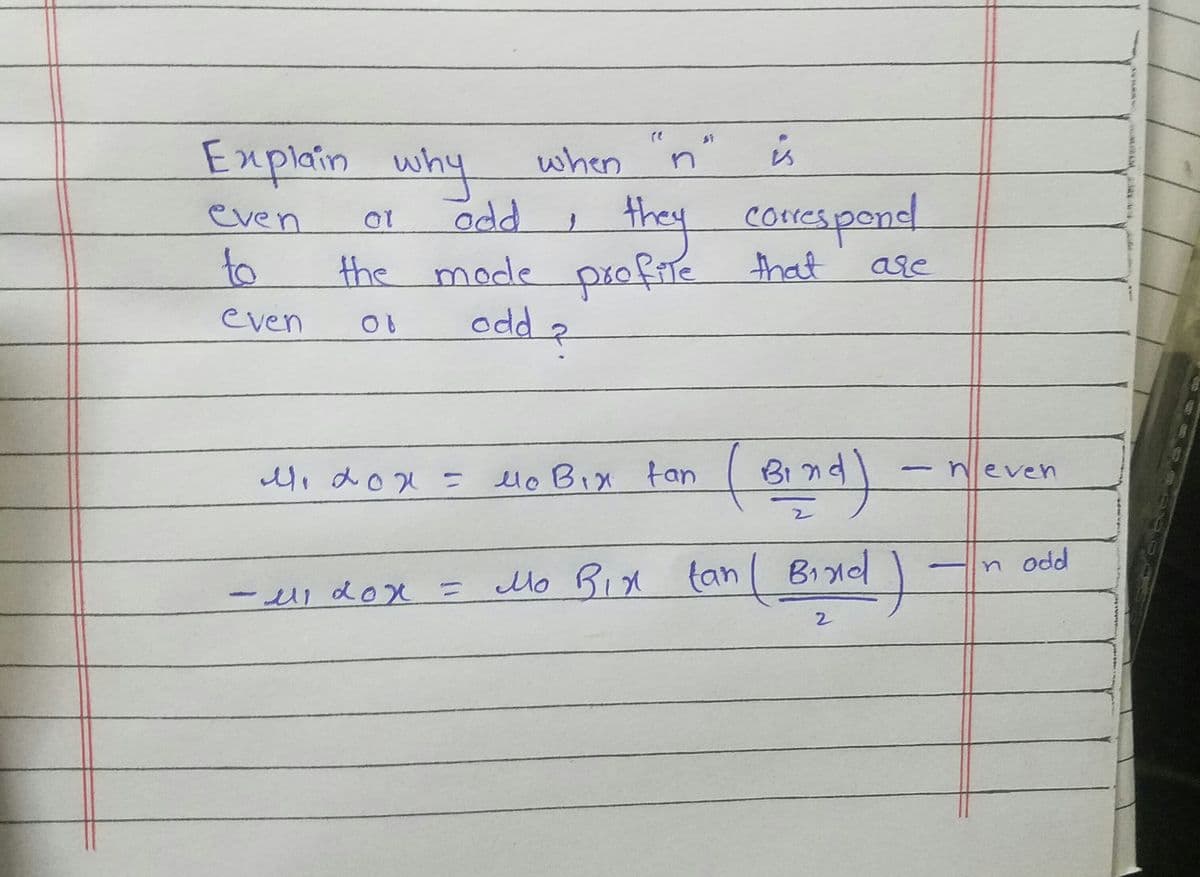 Explain why when "n" is
even or odd , they correspond
to the mode profile that are
even or odd ?
μ₁ αox = μo B₁x tan ( B₁xd / 2 ) - n even
- μ₁ αox = μo B₁x tan ( B₁xd / 2 ) - n odd